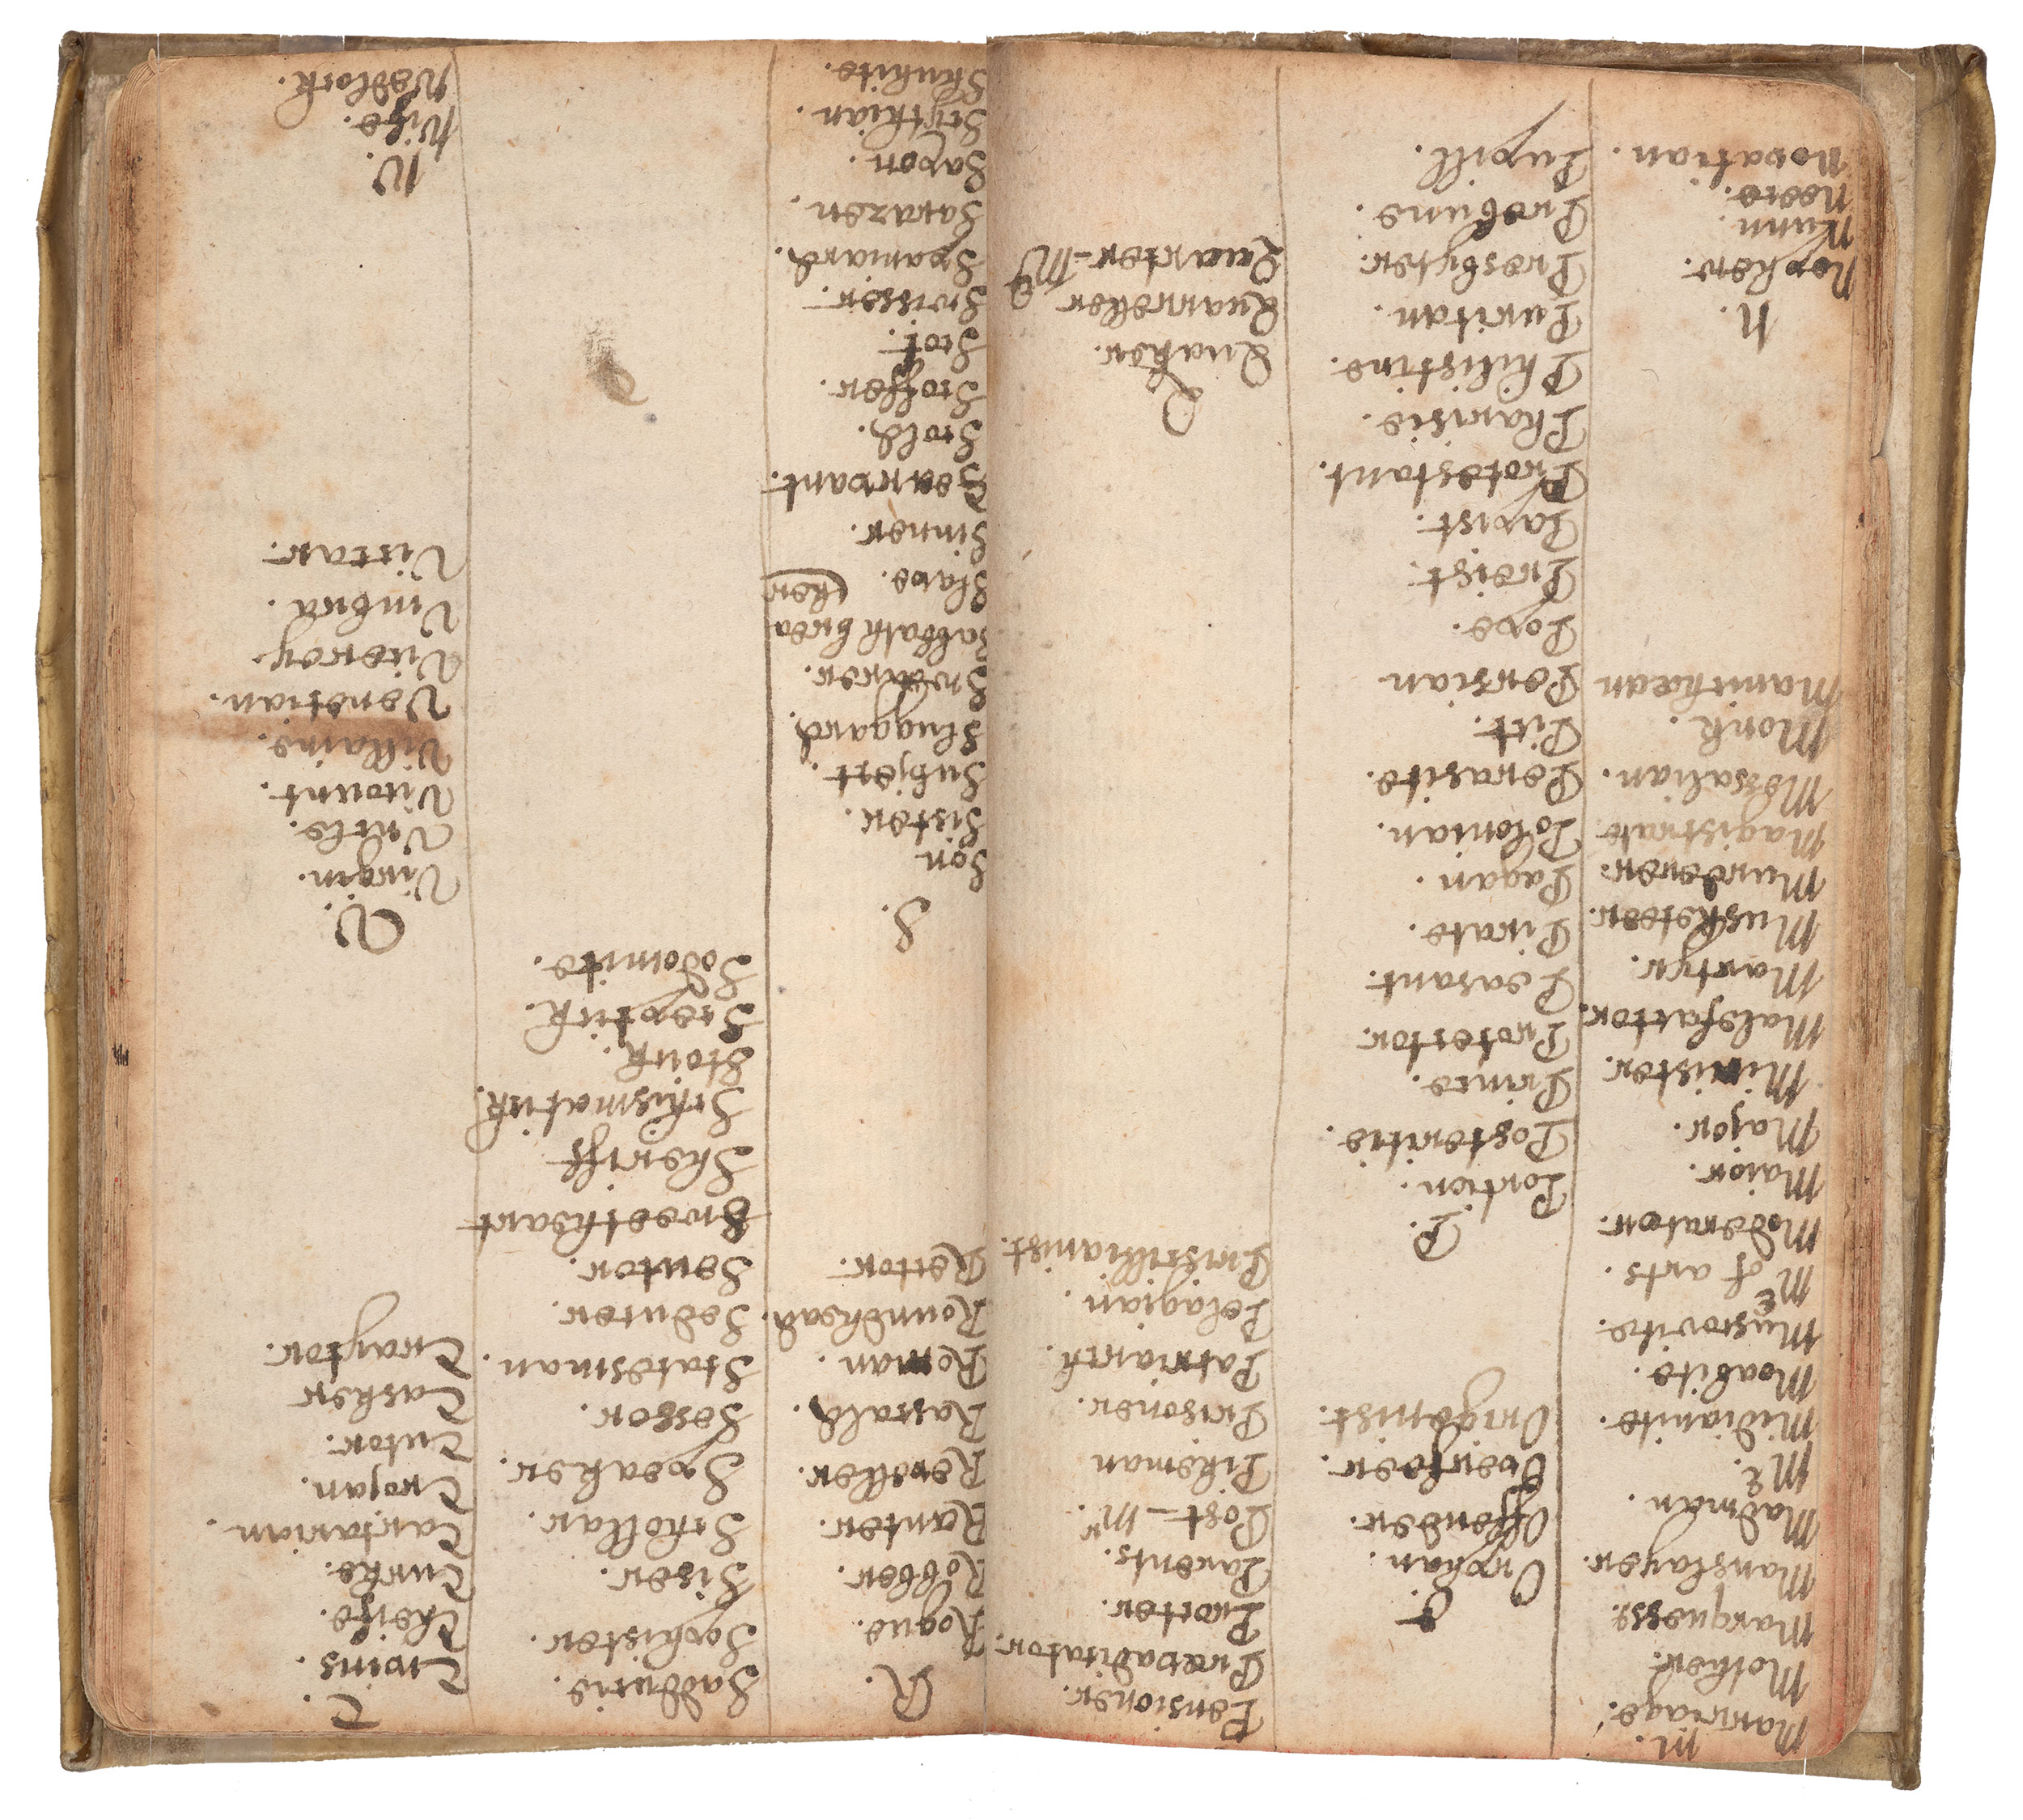 M.
Marriage.
Mother.
Marquesse
Manslayer.
Madman.
Mr.
Midianite.
Moabite.
Muscovite.
Mr of arts.
Moderator.
Maior.
Major.
Minister.
Malefactor.
Martyr.
Musketeer.
Murderer.
Magistrate
Messalian.
Monk.
Manichæan
N.
Nephew.
Nunn.
Neece.
Novatian.
O.
Orphan.
Offender.
Overseer.
Origenist.
P.
Portion.
Posteritie.
Prince.
Protector.
Peasant.
Pirate.
Pagan.
Polonian.
Perasite.
Pict.
Persian
Pope.
Preist.
Papist.
Protestant.
Pharisie.
Philistine.
Puritan.
Presbyter.
Pupill.
Pensioner.
Prævaricator.
Procter.
Parents.
Post-Mr.
Pikeman
Prisoner.
Patriarch.
Pelagian.
Priscillianist.
Q
Quaker.
Quarreller
Quarter-Mr
R.
Rogue.
Robber.
Ranter.
Reveller.
Rascald.
Roman.
Roundhead.
Rector.
S.
Son
Sister.
Subject.
Sluggard.
Swearer.
Sabbath brea
Slave. (ker
Sinner.
Searvant.
Scold.
Scoffer.
Scot.
Swisser.
Spaniard.
Sarazen.
Saxon.
Scythian.
Shuhite.
Sadducie.
Sophister.
Siser.
Schollar.
Speaker.
Sessor.
Statesman.
Seducer.
Seutor.
Sweetheart
Sheriff
Schismatick.
Stoick.
Sceptick.
Sodomite.
T.
Twins.
Theife.
Turke.
Tartarian.
Trojan.
Tutor.
Tasker
Traytor.
V.
Virgin.
Vncle.
Vicount.
Villaine.
Venetian.
Viceroy.
Vmbra.
Viccar.
W.
Wife.
Wedlock.